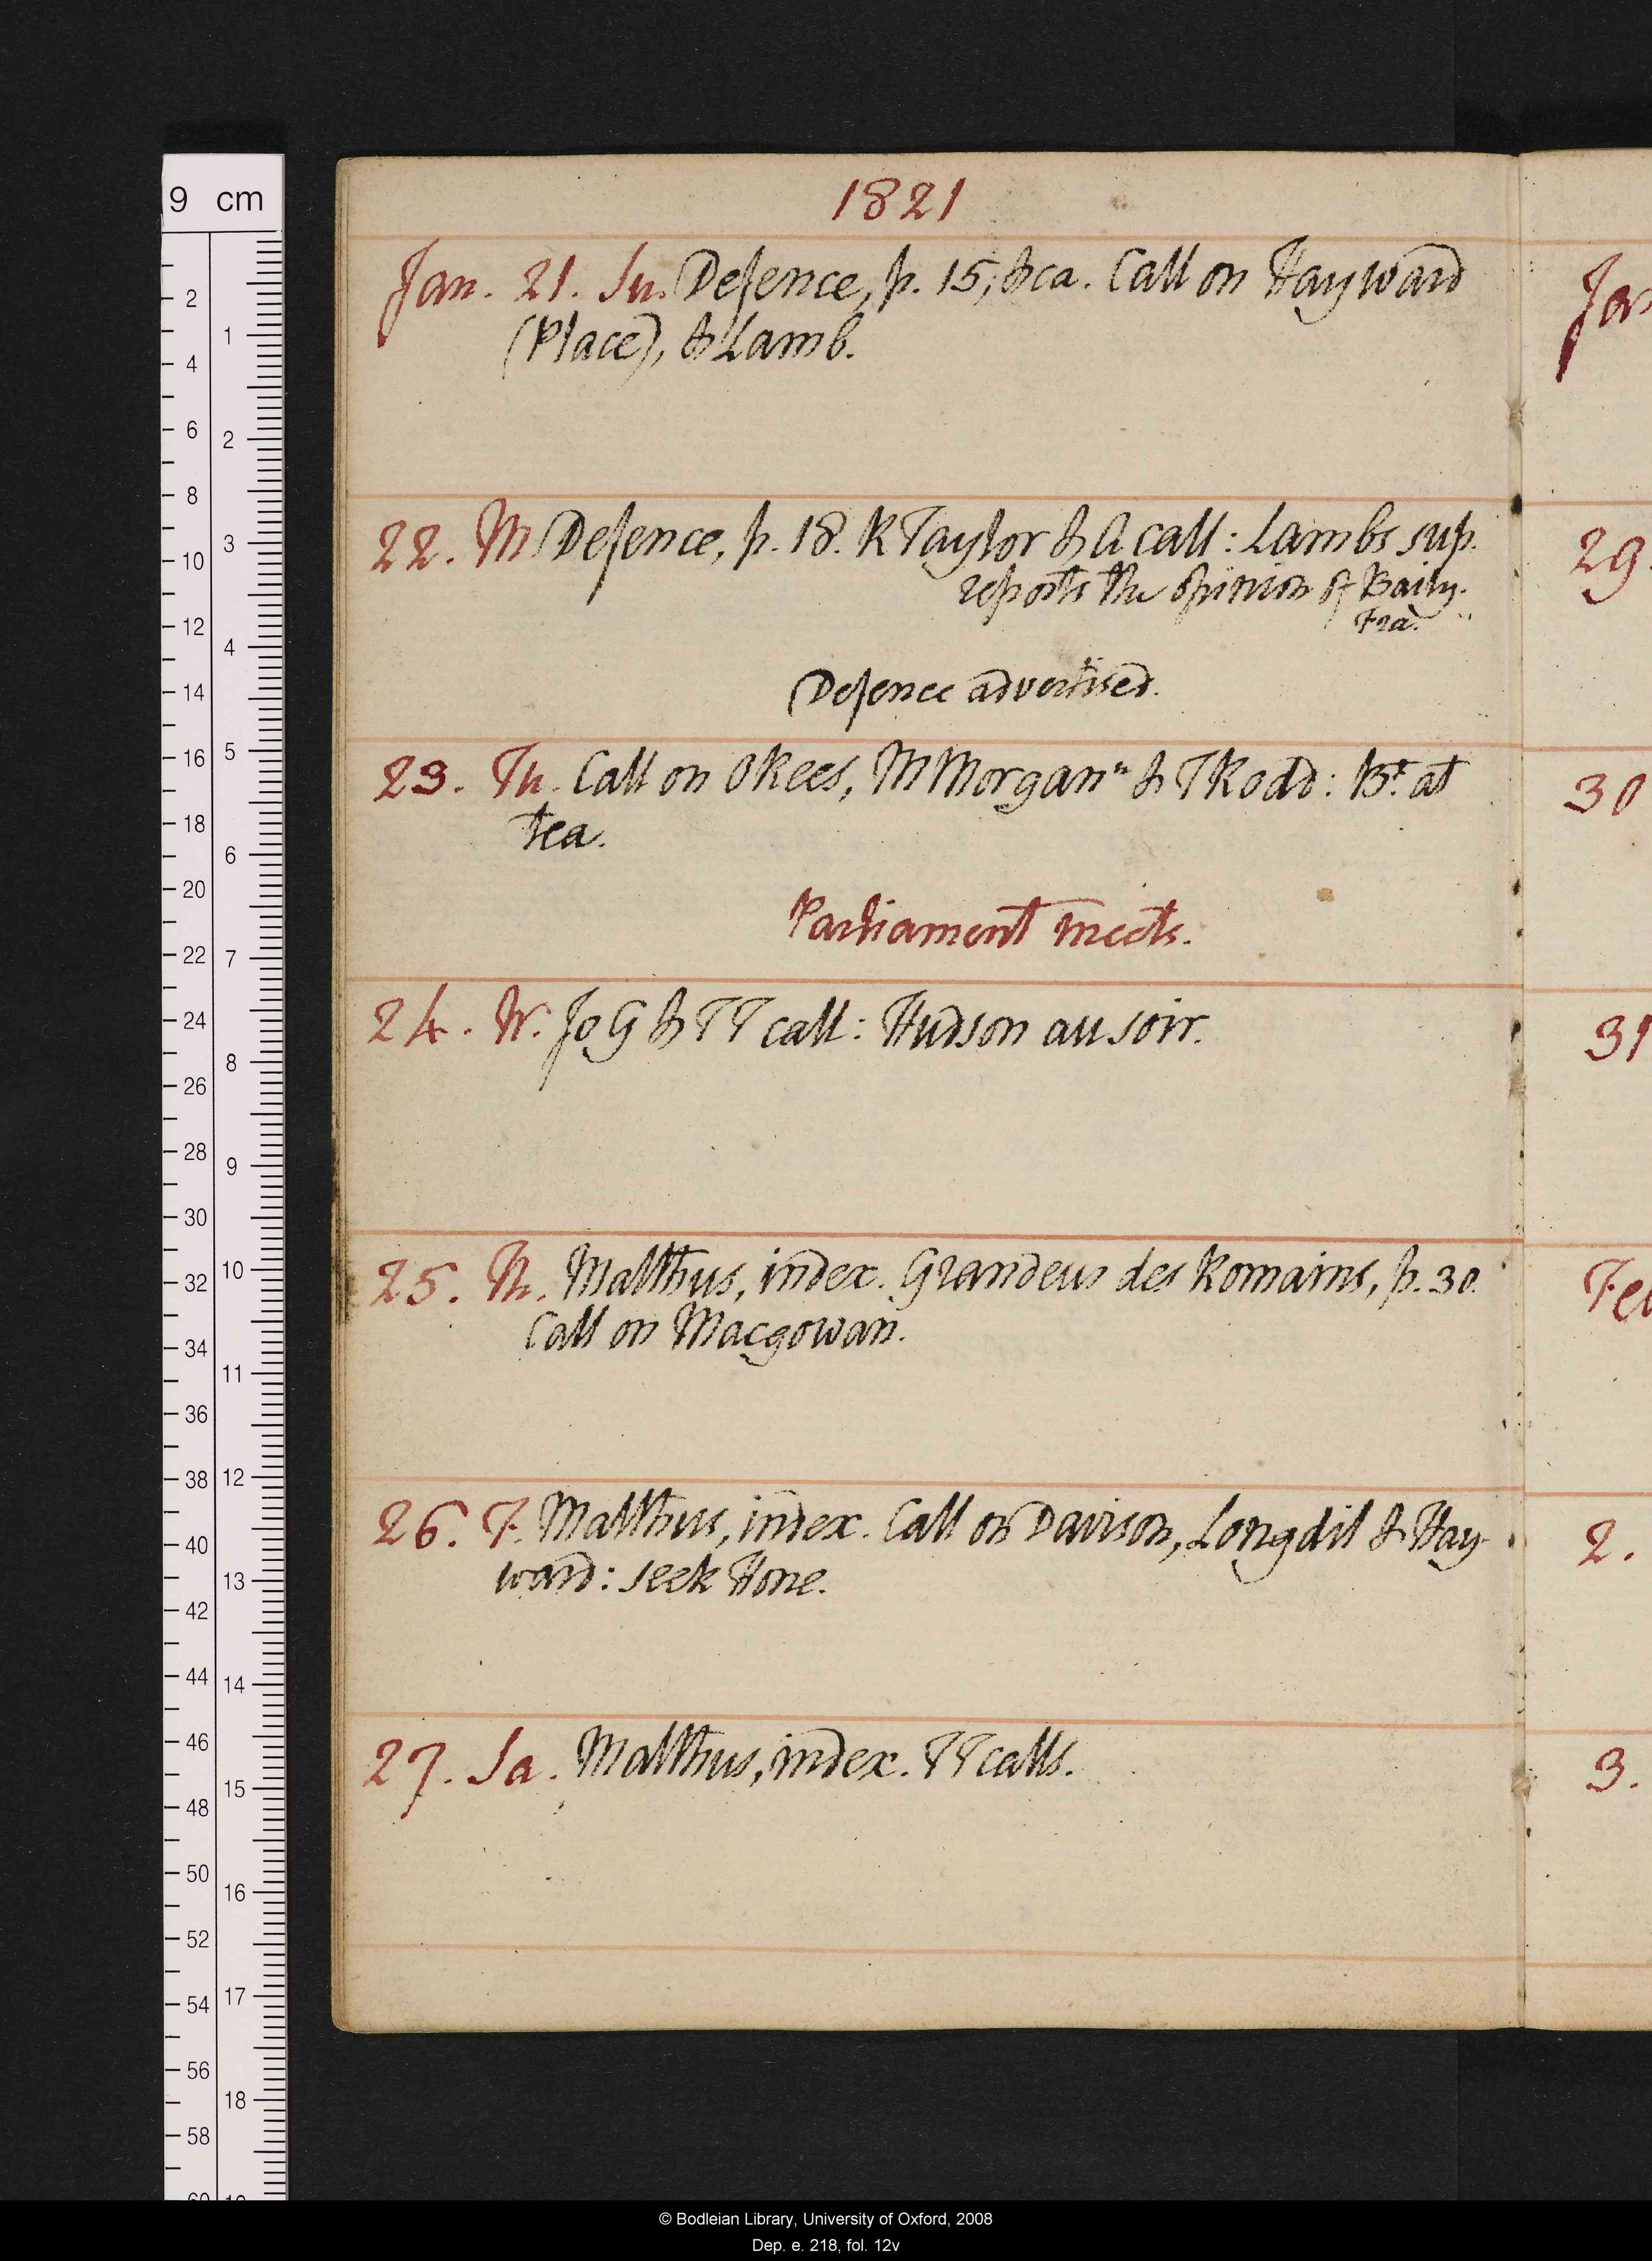 9 cm
1821
Jan. 21. Su. Defence, p. 15, &ca. Call on Hayward
(Place), & Lamb.
22. M Defence, p. 18. R Taylor & A call: Lambs sup.
reports the opinion of Baily.
Fra.
Defence advertised.
23. Tu. Call on OKees, M Morgann & T Rodd: Bt. at
tea.
Parliament meets.
24. W. Jo G & TT call: Hudson au soir.
25. Th. Malthus, index. Grandeur des Romains, p. 30.
Call on Macgowan.
26. F. Malthus, index. Call on Davison, Longdil & Hay-
ward: seek Hone.
27. Sa. Malthus, index. TT calls.
Jan
29.
30
31
Fe
2.
3.
© Bodleian Library, University of Oxford, 2008
Dep. e. 218, fol. 12v